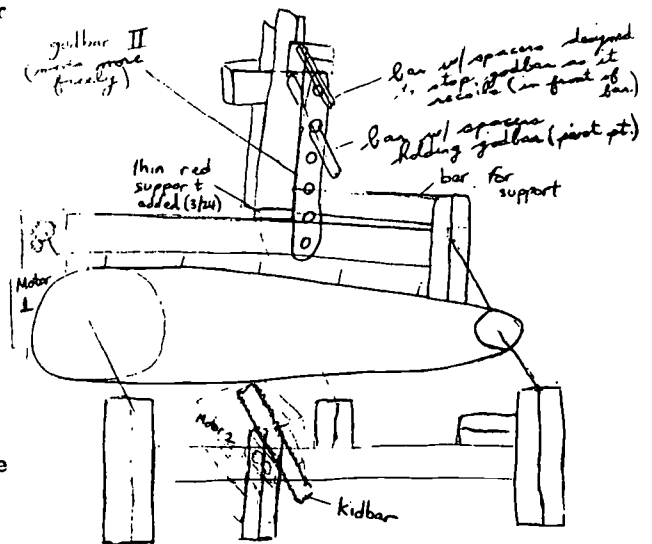 r
godbar II
(moves more
freely)
bar w/ spacers designed
to stop godbar as it
recoils (in front of
bar.)
bar w/ spacers
holding godbar (pivot pt.)
thin red
support
added (3/24)
bar for
support
Motor
1
Motor 2
kidbar
e